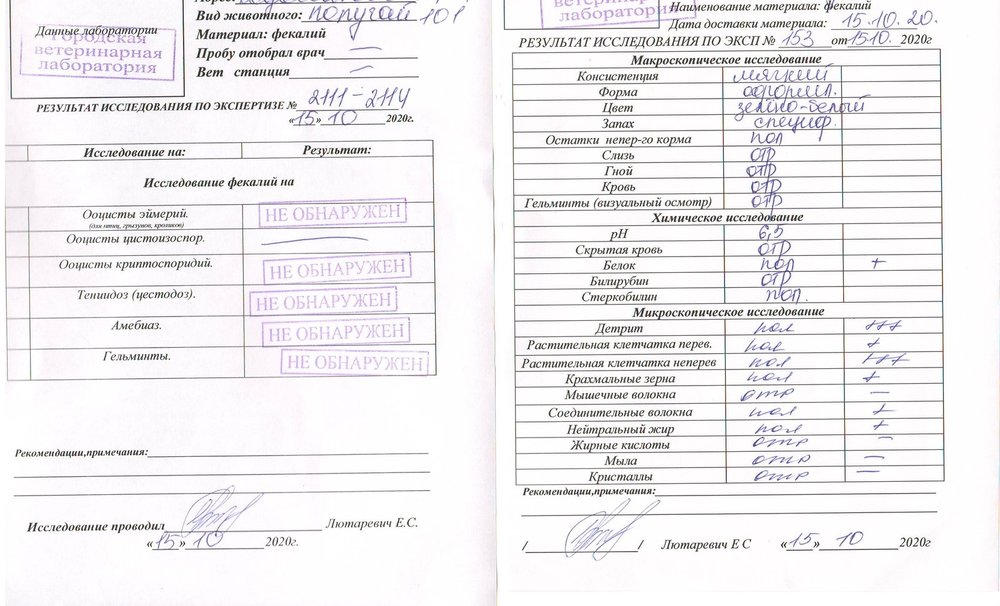 Вид животного: попугай
Данные лаборатории
Городская
ветеринарная
лаборатория
Материал: фекалий
Пробу отобрал врач —
Вет станция —
РЕЗУЛЬТАТ ИССЛЕДОВАНИЯ ПО ЭКСПЕРТИЗЕ № 2111-2114
«15» 10 2020г.
Исследование на: Результат:
Исследование фекалий на
Ооцисты эймерий. НЕ ОБНАРУЖЕН
(для птиц, грызунов, кроликов)
Ооцисты цистоизоспор. —
Ооцисты криптоспоридий. НЕ ОБНАРУЖЕН
Тениидоз (цестодоз). НЕ ОБНАРУЖЕН
Амебиаз. НЕ ОБНАРУЖЕН
Гельминты. НЕ ОБНАРУЖЕН
Рекомендации,примечания:
Исследование проводил Лютаревич Е.С.
«15» 10 2020г.
ветеринарная
лаборатория
Наименование материала: фекалий
Дата доставки материала: 15.10.20.
РЕЗУЛЬТАТ ИССЛЕДОВАНИЯ ПО ЭКСП № 153 от 15 10. 2020г
Макроскопическое исследование
Консистенция мягкий
Форма оформл.
Цвет зелено-белый
Запах специф.
Остатки непер-го корма пол
Слизь отр
Гной отр
Кровь отр
Гельминты (визуальный осмотр) отр
Химическое исследование
pH 6,5
Скрытая кровь отр
Белок пол +
Билирубин отр
Стеркобилин пол.
Микроскопическое исследование
Детрит пол +++
Растительная клетчатка перев. пол +
Растительная клетчатка неперев пол +++
Крахмальные зерна пол +
Мышечные волокна отр —
Соединительные волокна пол +
Нейтральный жир пол +
Жирные кислоты отр —
Мыла отр —
Кристаллы отр —
Рекомендации,примечания:
/ / Лютаревич Е С «15» 10 2020г